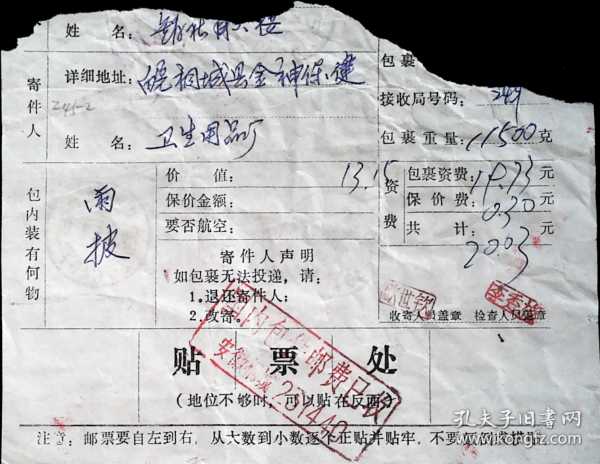 姓 名:
寄件人
详细地址: 皖桐城县金神保健
245-2
姓 名: 卫生用品厂
包裹
接收局号码: 249
包裹重量: 11500克
包内装有何物
雨披
价 值: 13.15
保价金额:
要否航空:
资费
包裹资费: 19.73元
保价费: 0.30元
共 计: 20.03元
寄件人声明
如包裹无法投递,请:
1.退还寄件人:
2.改寄:
收寄人员盖章 检查人员盖章
国内包件邮费已收
安徽桐城 231440
贴 票 处
(地位不够时,可以贴在反面)
注意:邮票要自左到右,从大数到小数逐个正贴并贴牢,不要
孔夫子旧书网